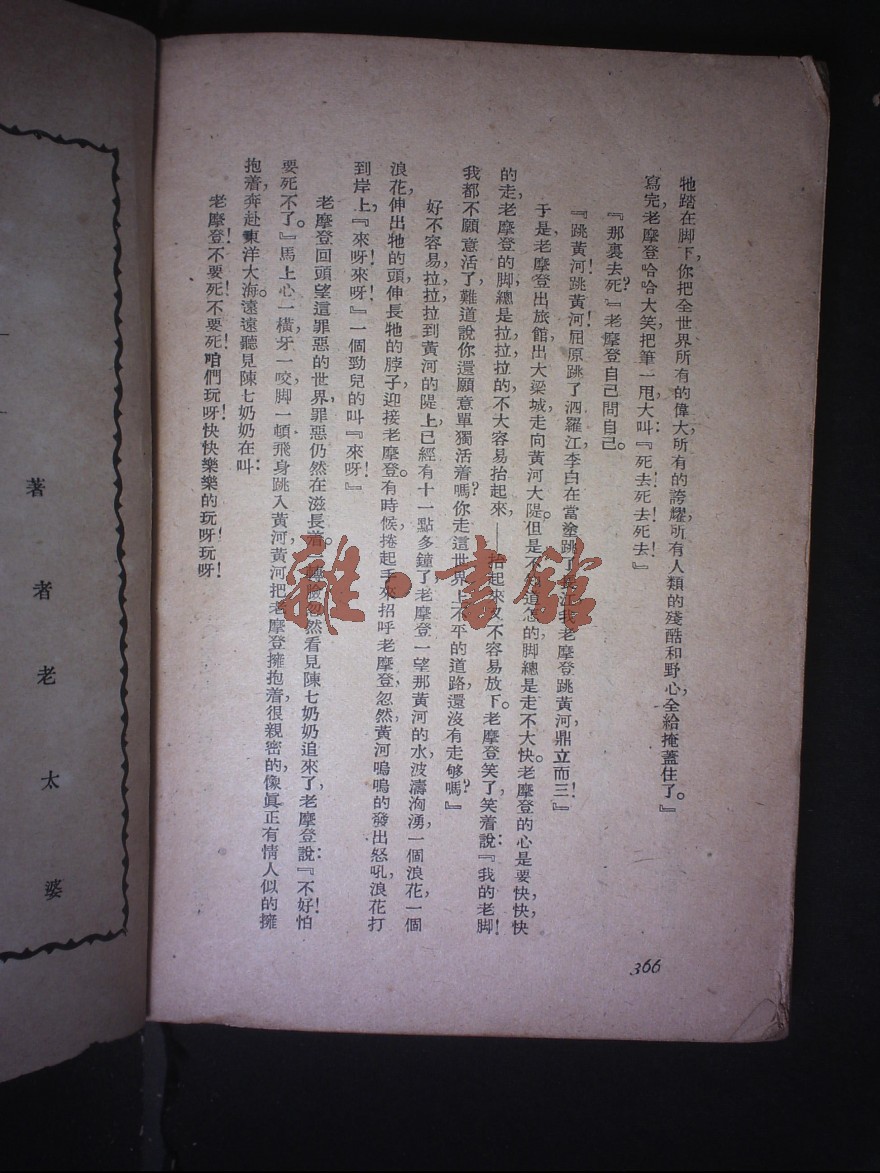 牠踏在脚下,你把全世界所有的偉大,所有的誇耀,所有人類的殘酷和野心,全給掩蓋住了。』
寫完,老摩登哈哈大笑,把筆一甩,大叫:『死去!死去!死去!』
『那裏去死?』老摩登自己問自己。
『跳黃河!跳黃河!屈原跳了泗羅江,李白在當塗跳了
我老摩登跳黃河,鼎立而三!』
于是,老摩登出旅館,出大梁城,走向黃河大隄。但是不
道怎的,脚總是走不大快。老摩登的心是要快,快,快
的走,老摩登的脚總是拉,拉,拉的,不大容易抬起來——抬起來又不容易放下。老摩登笑了,笑着說:『我的老脚!
我都不願意活了,難道說你還願意單獨活着嗎?你走這世界上不平的道路,還沒有走够嗎?』
好不容易,拉,拉,拉,拉到黃河的隄上,已經有十一點多鐘了。老摩登一望那黃河的水,波濤洶湧,一個浪花,一個
浪花,伸出牠的頭,伸長牠的脖子,迎接老摩登。有時候捲起手來,招呼老摩登,忽然黃河嗚嗚的發出怒吼,浪花打
到岸上,『來呀!來呀!』一個勁兒的叫『來呀!』
老摩登回頭望這罪惡的世界,罪惡仍然在滋長着。
轉臉忽然看見陳七奶奶追來了,老摩登說:『不好!怕
要死不了。』馬上心一橫,牙一咬,脚一頓,飛身跳入黃河,黃河把老摩登擁抱着,很親密的,像眞正有情人似的擁
抱着,奔赴東洋大海。遠遠聽見陳七奶奶在叫:
老摩登!不要死!不要死!咱們玩呀!快快樂樂的玩呀!玩呀!
366
著者老太婆
雜·書館